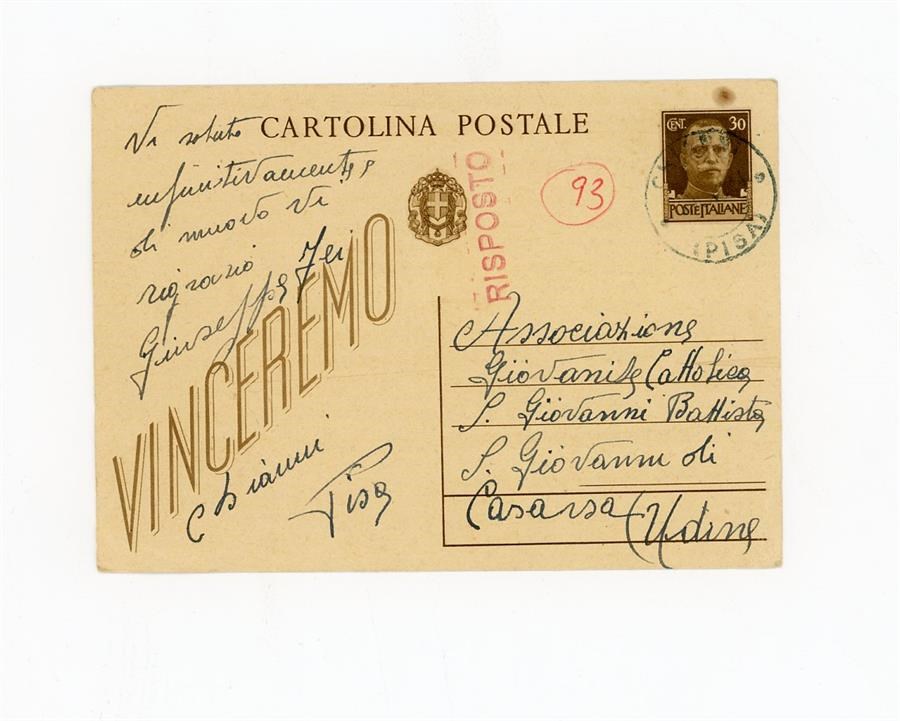 CARTOLINA POSTALE
CENT. 30
POSTE ITALIANE
(PISA)
RISPOSTO
93
Vi saluto
di nuovo Vi
Giuseppe
VINCEREMO
Pisa
Associazione
Giovanile Cattolica
S. Giovanni Battista
S. Giovanni di
Casarsa
(Udine